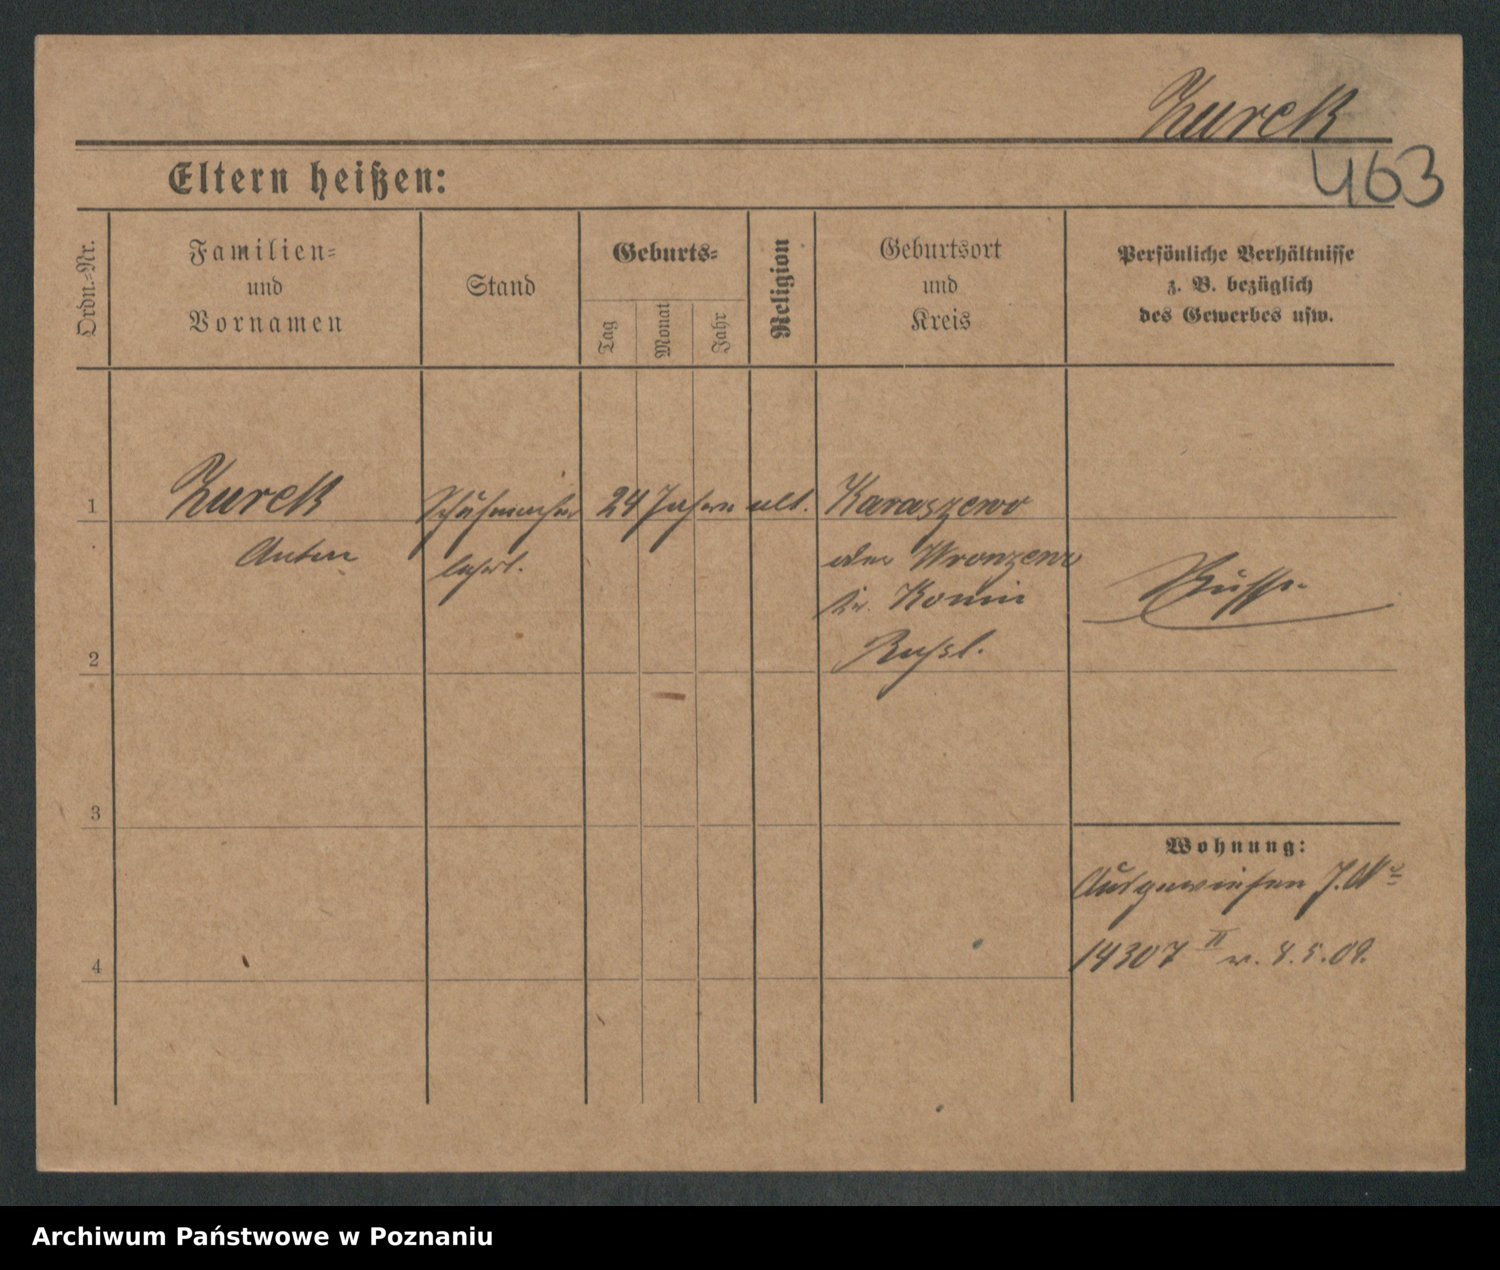 Zurek
463
Eltern heißen:
Ordn.-Nr.
Familien-
und
Vornamen
Stand
Geburts-
Tag
Monat
Jahr
Religion
Geburtsort
und
Kreis
Persönliche Verhältnisse
z. B. bezüglich
des Gewerbes usw.
1 Zurek Schuhmacher 24 Jahre alt. Karaszewo
Anton oder Wronzewo
Kr. Konin
Russl.
2
3
Wohnung:
Ausgewiesen J.No
14307 II v. 4.5.09.
4
Archiwum Państwowe w Poznaniu